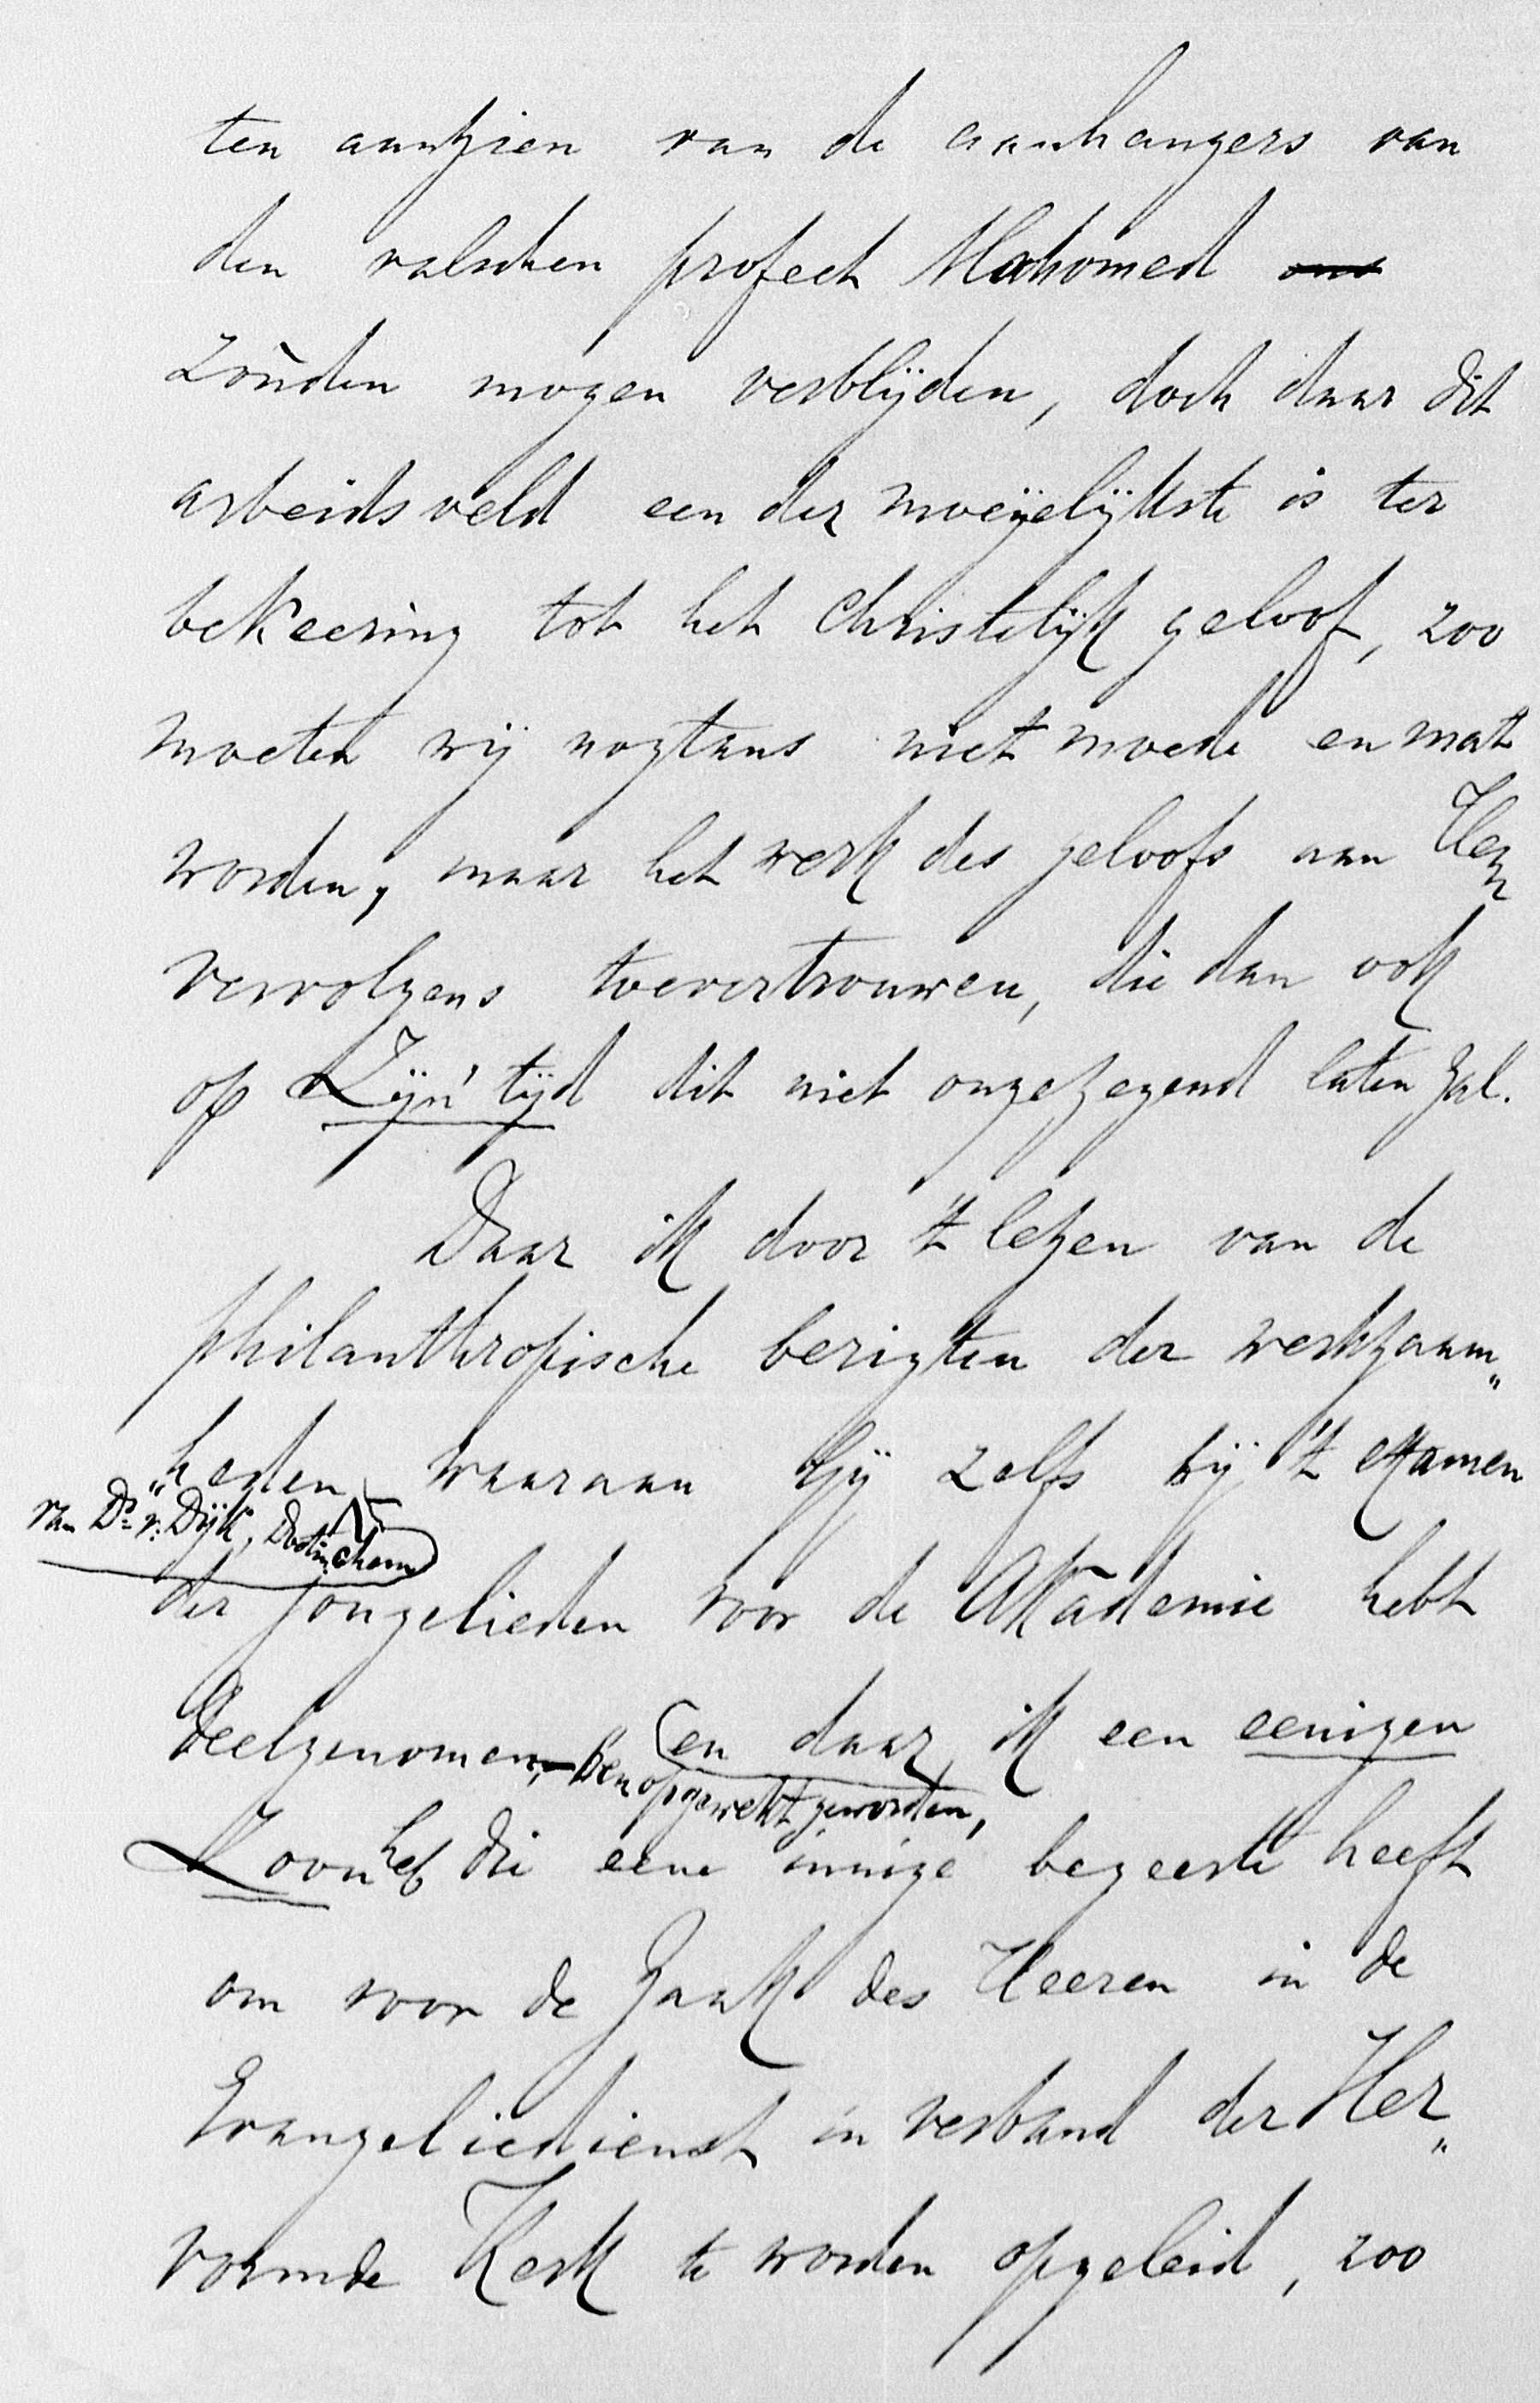 ten aanzien van de aanhangers van
den valschen profeet Mahomed ons
zouden mogen verblijden, doch daar dit
arbeidsveld een der moeijelijkste is ter
bekeering tot het Christelijk geloof, zoo
moeten wij nogtans niet moede en mat
worden, maar het werk des geloofs aan Hem
vervolgens toevertrouwen, die dan ook
op Zijn' tijd dit niet ongezegend laten zal.
Daar ik door 't lezen van de
philanthropische berigten der werkzaam„
„heden waaraan Gij zelfs bij 't examen
van Ds. v. Dijk, Doetinchem
der jongelieden voor de Akademie hebt
deelgenomen, (en daar ik een eenigen
ben opgewekt geworden,
Zoon heb die eene innige begeerte heeft
om voor de zaak des Heeren in de
Evangeliedienst in verband der Her„
vormde Kerk te worden opgeleid, zoo